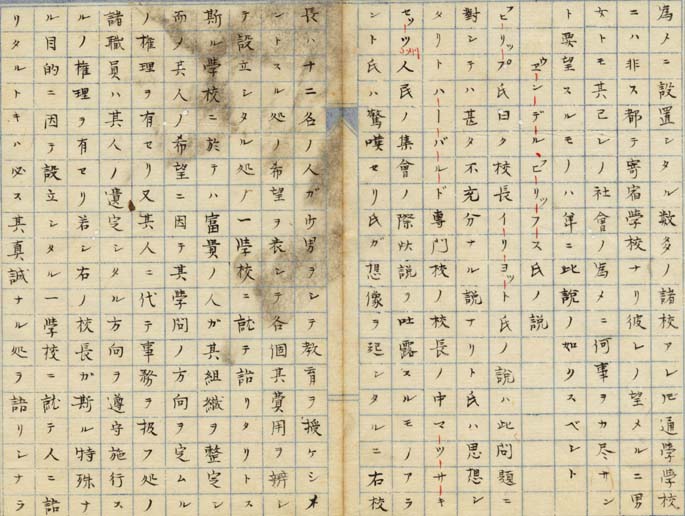 為メニ設置シタル数多ノ諸校アレ𪜈通学学校
ニハ非ス都テ寄宿学校ナリ彼レノ望メルニ男
女トモ其己レノ社會ノ為メニ何事ヲカ尽サン
ト要望スルモノハ単ニ此説ノ如リスベント
ウヱンデール、ヒリッフース氏ノ説
ヒーリップ氏曰ク校長イーリヨット氏ノ説ハ此問題ニ
對シテハ甚タ不充分ナル説ナリト氏ハ思想シ
タリトハーバールド専門校ノ校長ノ申マッサキ
セッツ人民ノ集會ノ際此説ヲ吐露スルモノアラ
ント氏ハ驚嘆セリ氏ガ想像ヲ起シタルニ右校
長ハ十二名ノ人ガ男ヲシテ教育ヲ授ケシメ
ントスル処ノ希望ヲ表シテ各個其費用ヲ辨シ
テ設立シタル処ノ一學校ニ就テ語リタリトス
斯ル學校ニ於テハ富貴ノ人ガ其組織ヲ整定シ
而メ其人ノ希望ニ因テ其學問ノ方向ヲ定ムル
ノ権理ヲ有セリ又其人ニ代テ事務ヲ扱フ処ノ
諸職員ハ其人ノ遺定シタル方向ヲ遵守施行ス
ルノ権理ヲ有セリ若シ右ノ校長ガ斯ル特殊ナ
ル目的ニ因テ設立シタル一學校ニ就テ人ニ語
リタルトキハ必ス其真誠ナル処ヲ語リシナラ